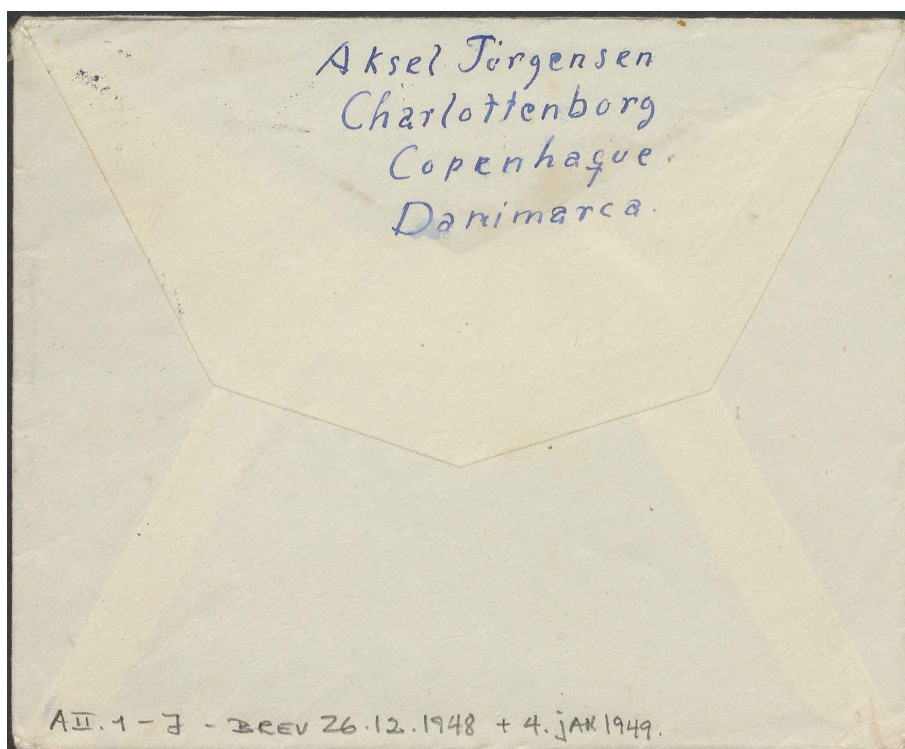 Aksel Jörgensen
Charlottenborg
Copenhague.
Danimarca.
AII. 1 - 7 - BREV 26.12.1948 + 4. JAN 1949.